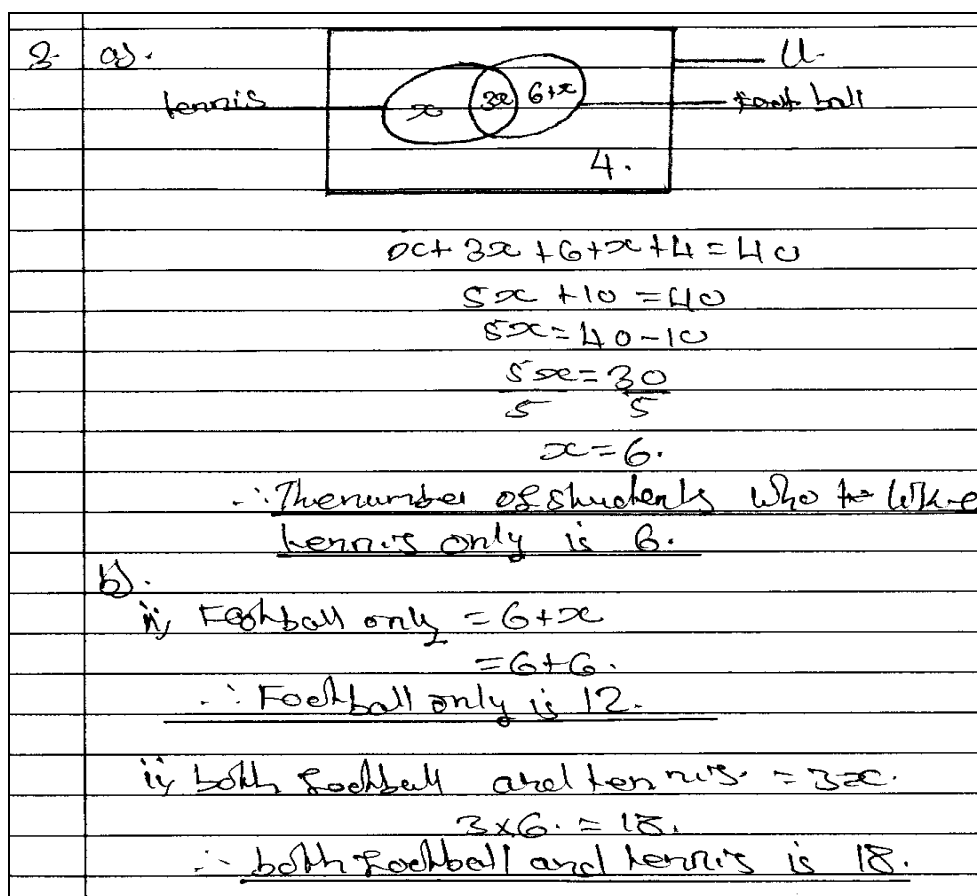 3. a).
U.
tennis x 3x 6+x Foot ball
4.
x+ 3x +6+x +4 = 40
5x +10 = 40
5x = 40-10
5x = 30
5 5
x = 6.
∴ The number of students who like
tennis only is 6.
b).
i, Football only = 6+x
= 6+6.
∴ Football only is 12.
ii, both football and tennis. = 3x.
3x6. = 18.
∴ both football and tennis is 18.